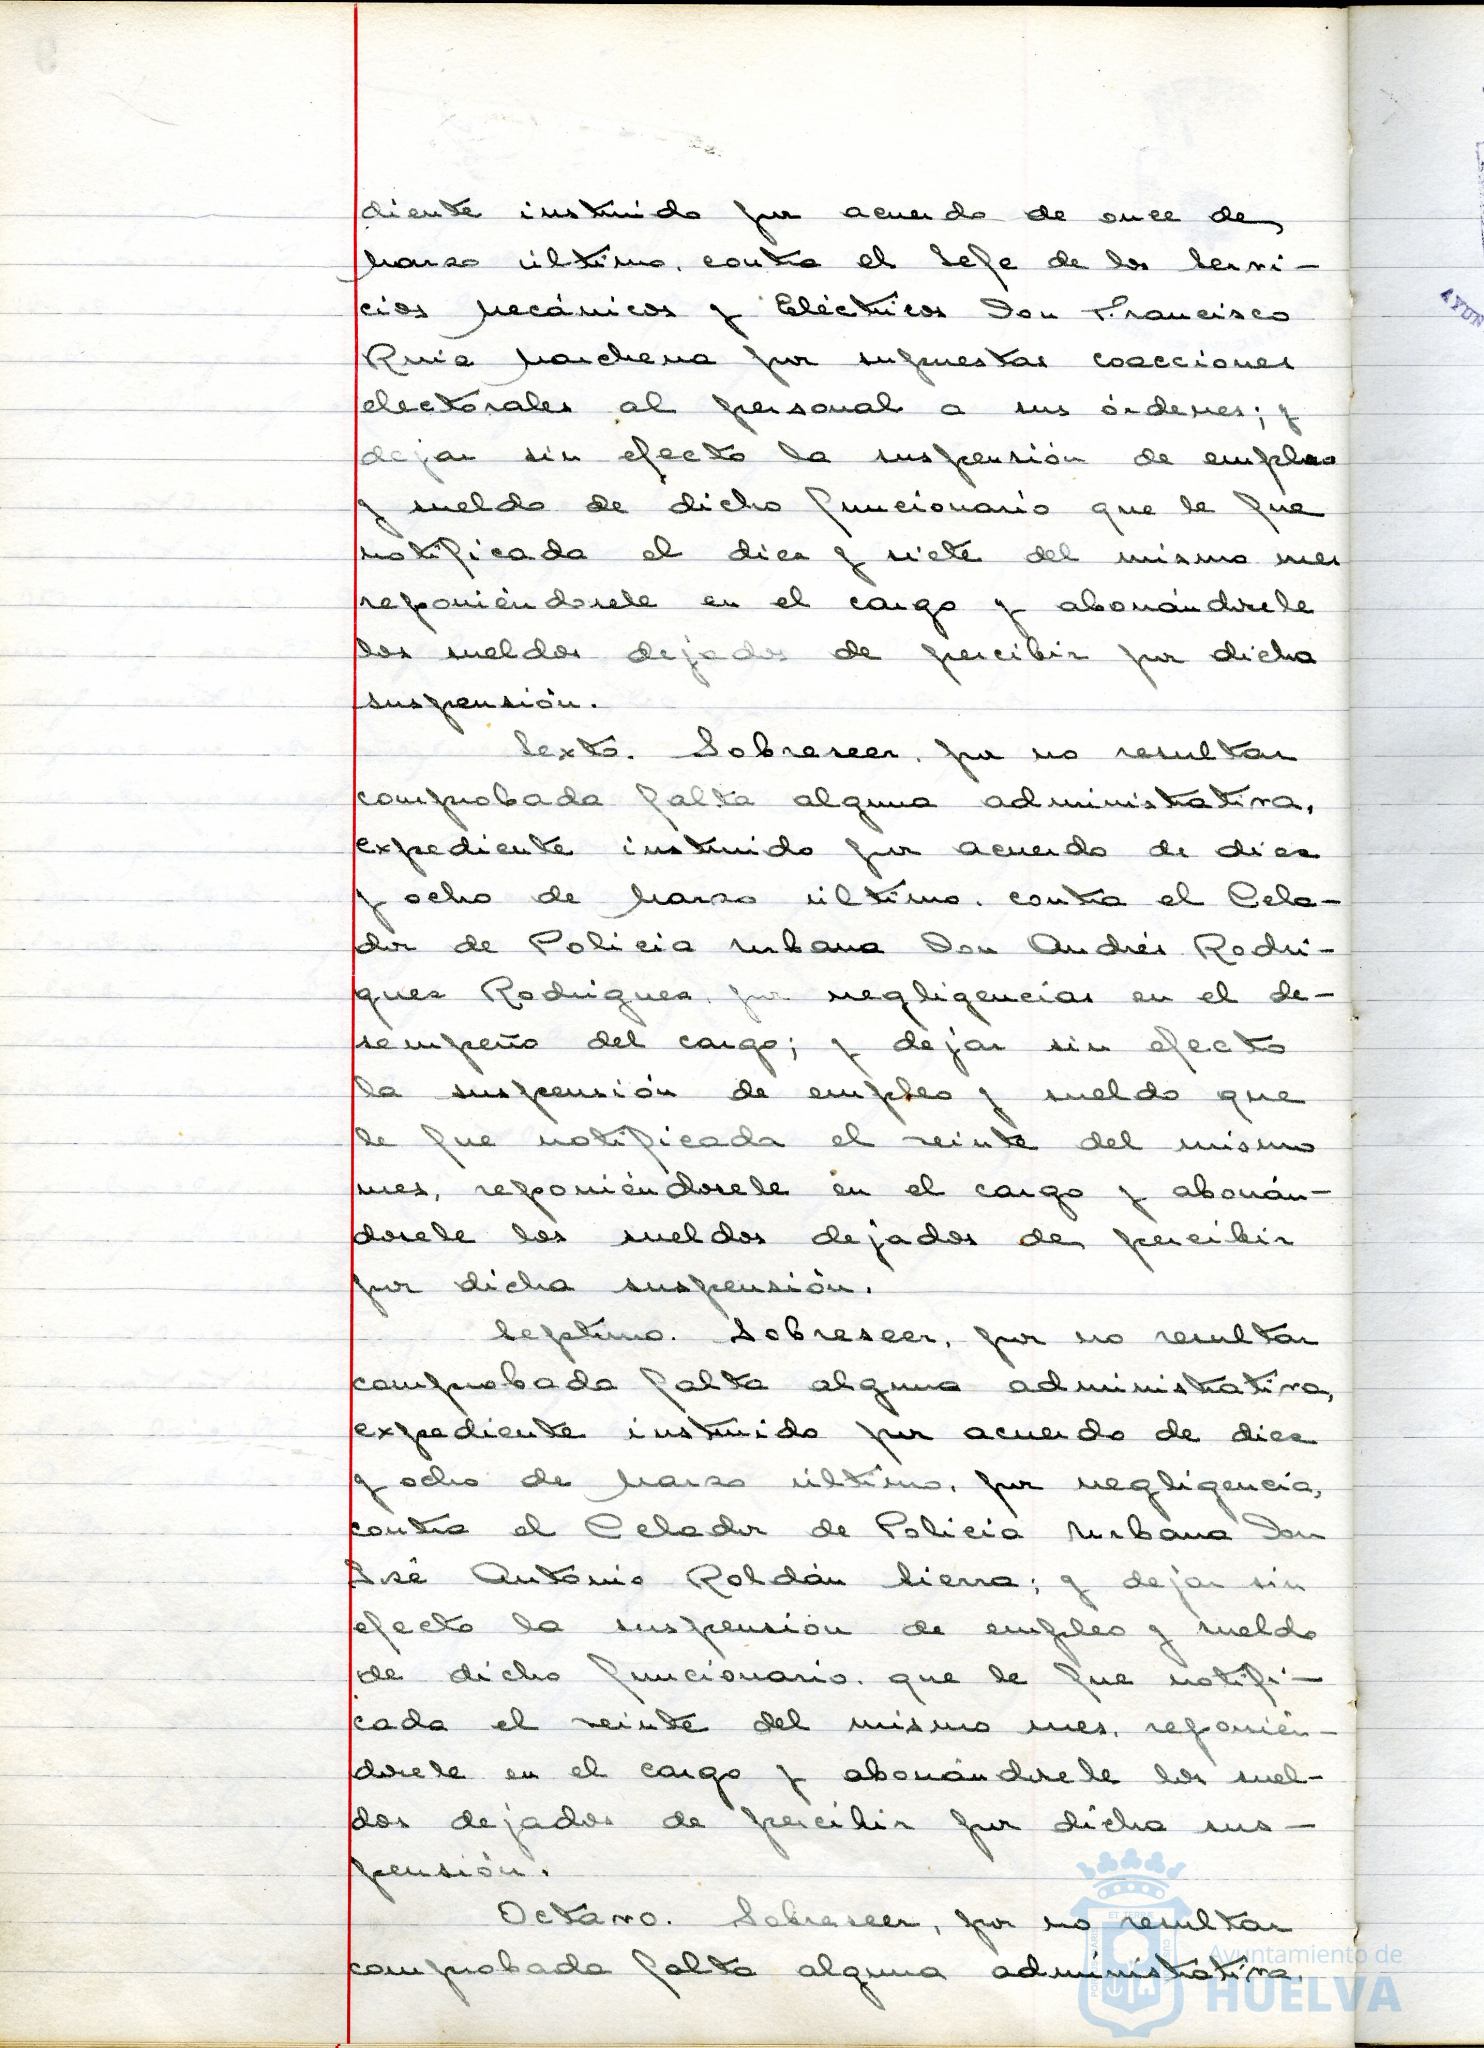 diente instruido por acuerdo de once de
Marzo último, contra el Jefe de los Servi-
cios Mecánicos y Eléctricos Don Francisco
Ruiz Marchena por supuestas coacciones
electorales al personal a sus órdenes; y
dejar sin efecto la suspensión de empleo
y sueldo de dicho funcionario que le fue
notificada el diez y siete del mismo mes
reponiéndosele en el cargo y abonándosele
los sueldos dejados de percibir por dicha
suspensión.
Sexto. Sobreseer, por no resultar
comprobada falta alguna administrativa,
expediente instruido por acuerdo de diez
y ocho de Marzo último, contra el Cela-
dor de Policia Urbana Don Andrés Rodri-
guez Rodriguez, por negligencias en el de-
sempeño del cargo; y dejar sin efecto
la suspensión de empleo y sueldo que
le fue notificada el veinte del mismo
mes, reponiéndosele en el cargo y abonán-
dosele los sueldos dejados de percibir
por dicha suspensión.
Septimo. Sobreseer, por no resultar
comprobada falta alguna administrativa,
expediente instruido por acuerdo de diez
y ocho de Marzo último, por negligencia,
contra el Celador de Policia Urbana Don
José Antonio Roldán Sierra; y dejar sin
efecto la suspensión de empleo y sueldo
de dicho funcionario, que le fue notifi-
cada el veinte del mismo mes, reponién-
dosele en el cargo y abonándosele los suel-
dos dejados de percibir por dicha sus-
pensión.
Octavo. Sobreseer, por no resultar
comprobada falta alguna administrativa,
Ayuntamiento de
HUELVA
AYUN